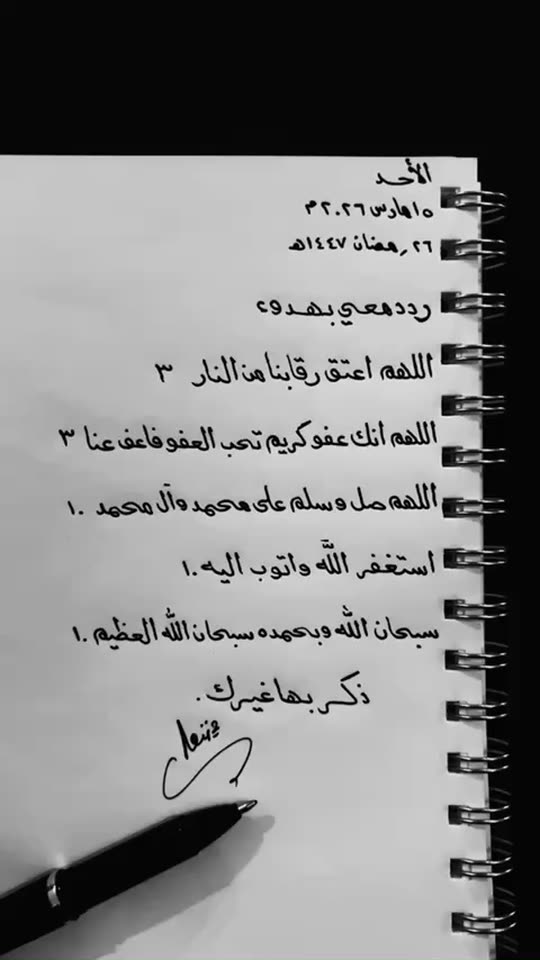 الأحد
١٥ مارس ٢٠٢٦م
٢٦ رمضان ١٤٤٧هـ
ردد معي بهدوء
اللهم اعتق رقابنا من النار ٣
اللهم انك عفو كريم تحب العفو فاعف عنا ٣
اللهم صل وسلم على محمد وآل محمد ١٠
استغفر اللَّه واتوب اليه ١٠
سبحان الله وبحمده سبحان الله العظيم ١٠
ذكر بها غيرك.